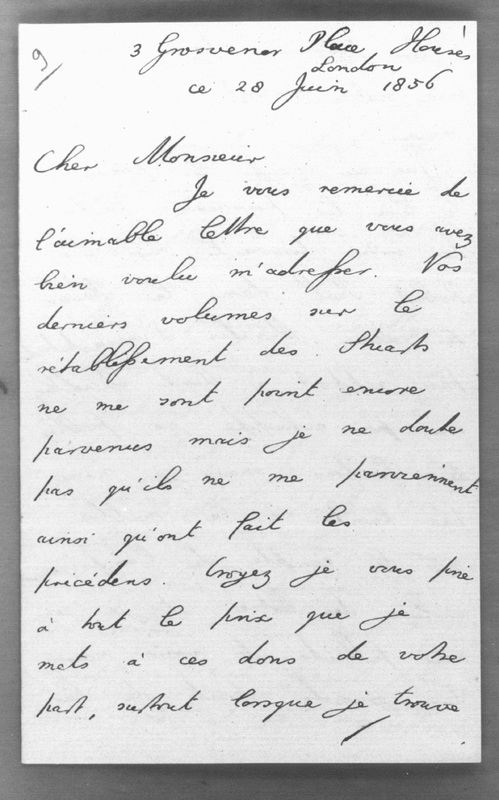 9/
3 Grosvenor Place Houses
London
ce 28 Juin 1856
Cher Monsieur
Je vous remercie de
l'aimable lettre que vous avez
bien voulu m'adresser. Vos
derniers volumes sur le
rétablissement des Stuarts
ne me sont point encore
parvenus mais je ne doute
pas qu'ils ne me parviennent
ainsi qu'ont fait les
précédens. Croyez je vous prie
à tout le prix que je
mets à ces dons de votre
part, surtout lorsque je trouve